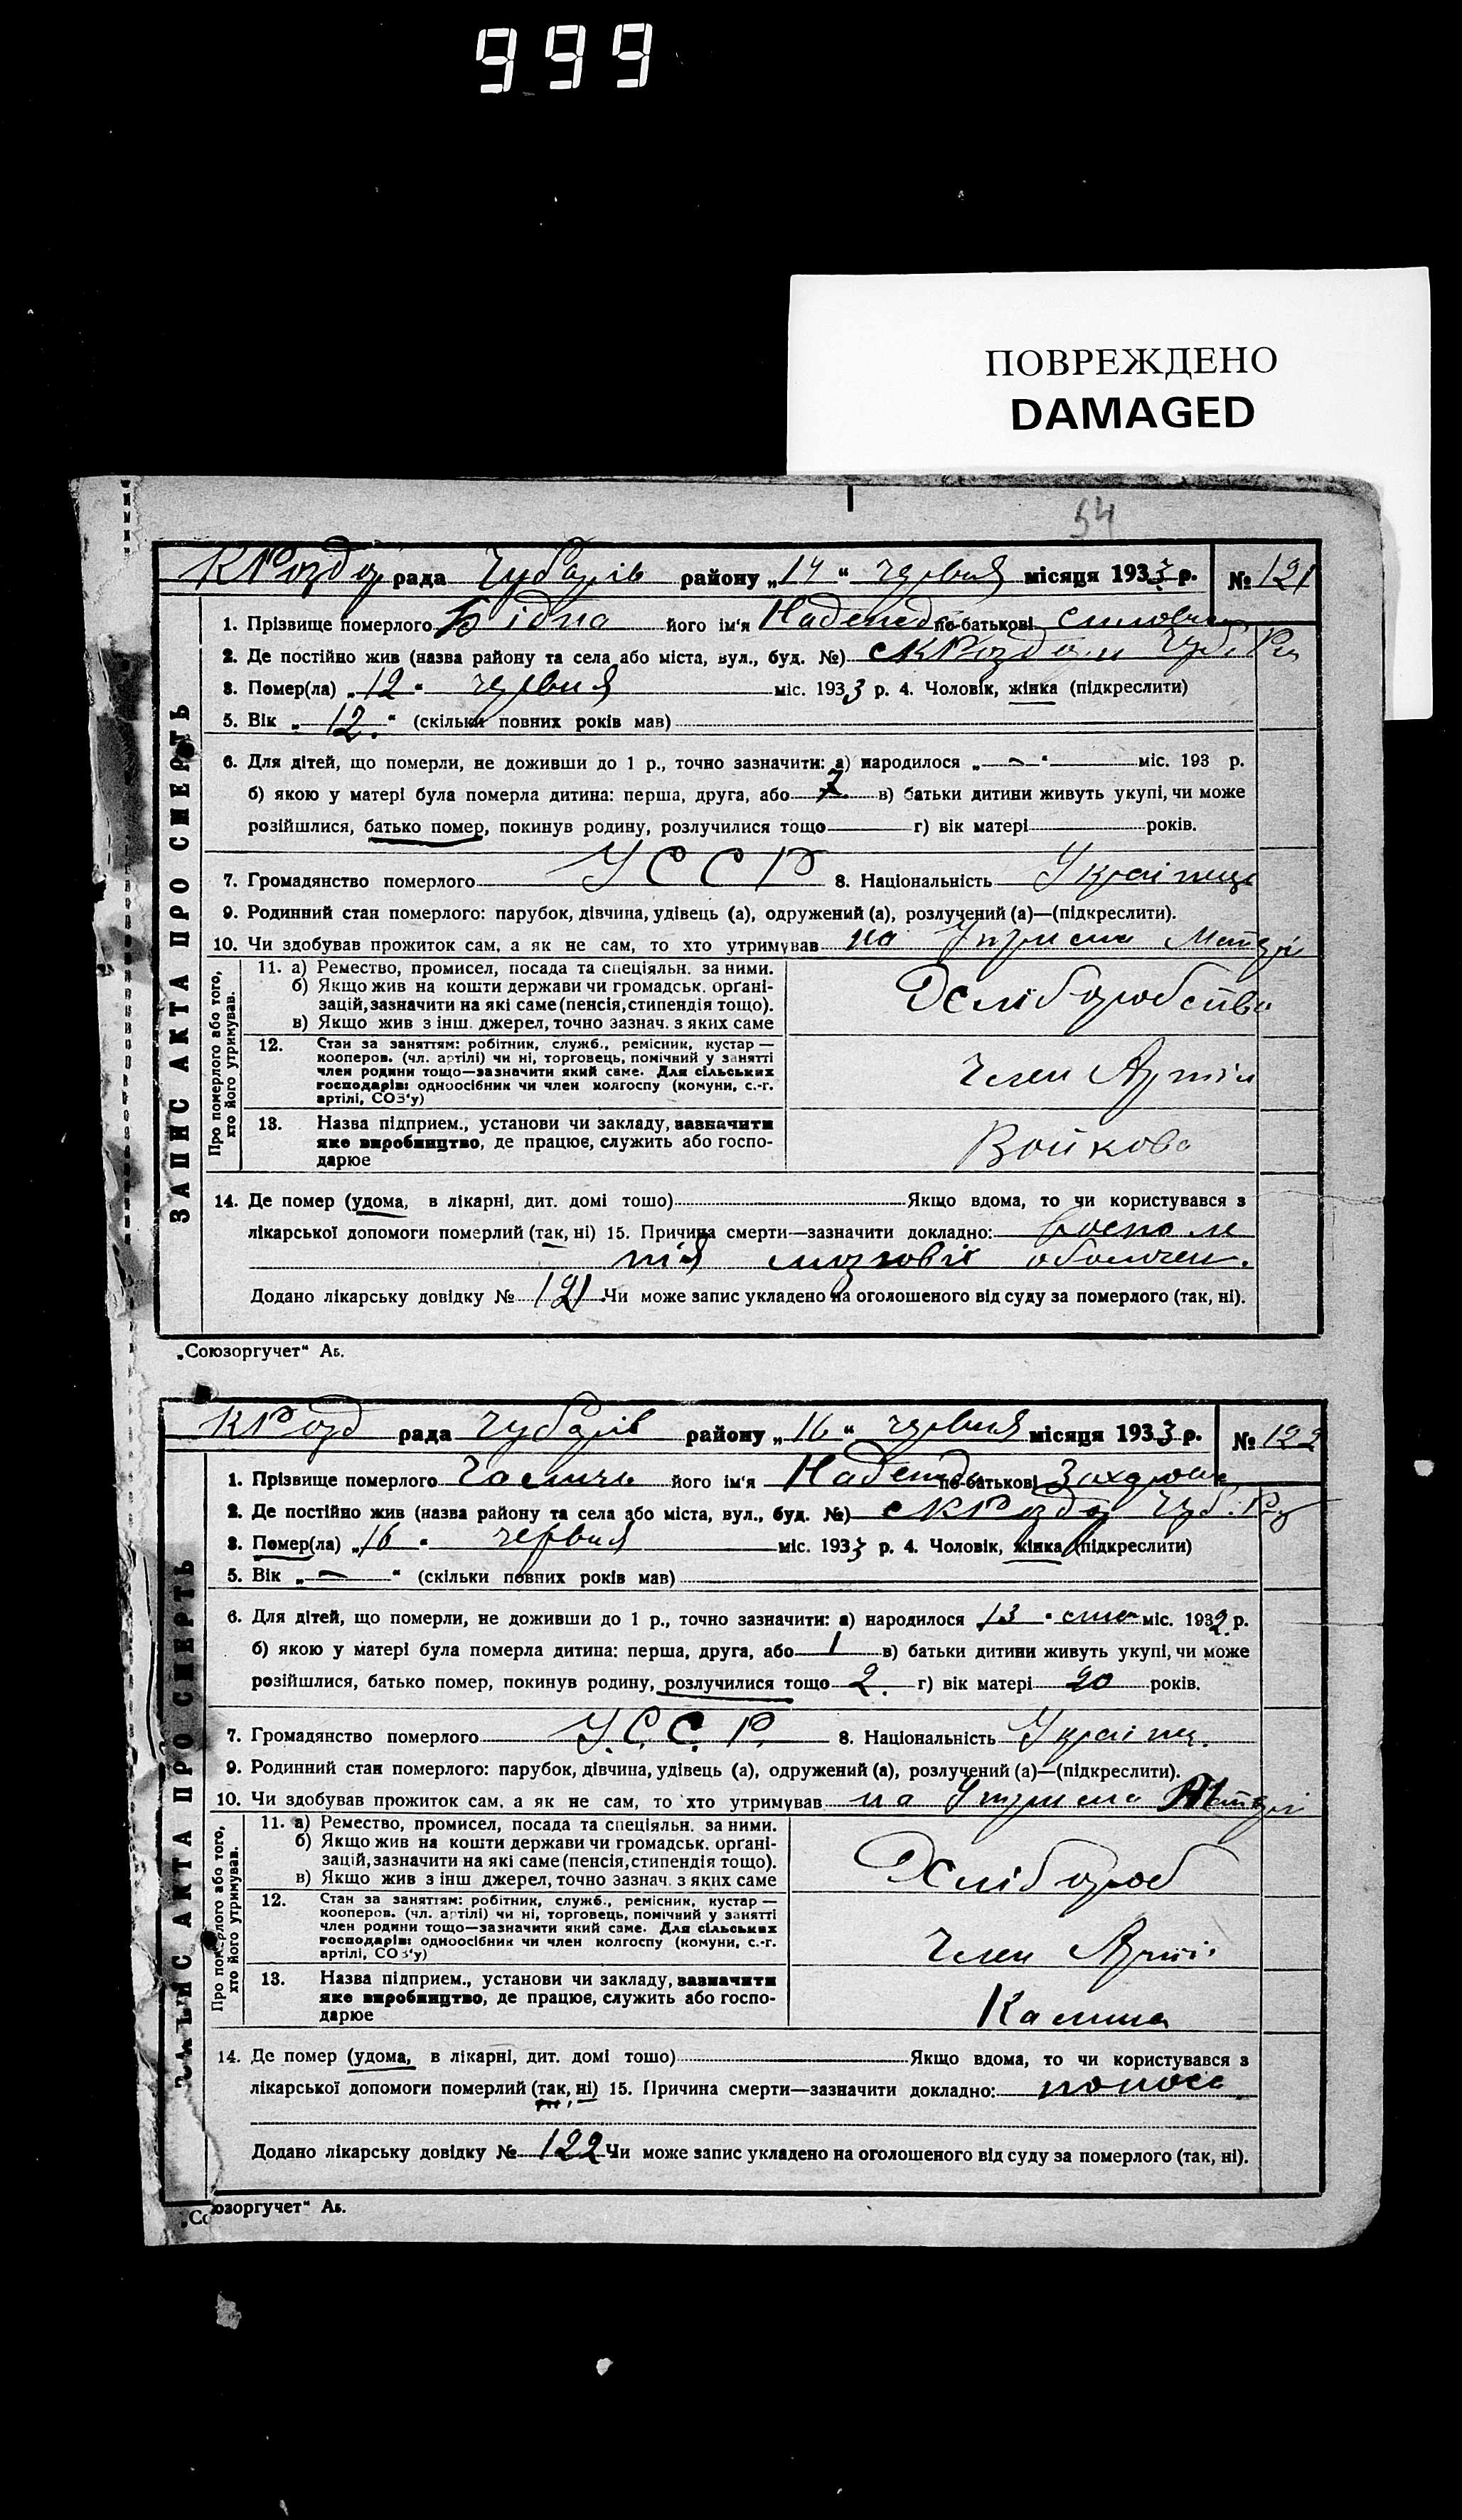 999
ПОВРЕЖДЕНО
DAMAGED
54
рада Чубарів району „14“ червня місяця 1933 р. № 121
ЗАПИС АКТА ПРО СМЕРТЬ
1. Прізвище померлого Бідна його ім'я по-батькові
2. Де постійно жив (назва району та села або міста, вул., буд. №)
3. Помер(ла) „12“ червня міс. 1933 р. 4. Чоловік, жінка (підкреслити)
5. Вік „12“ (скільки повних років мав)
6. Для дітей, що померли, не доживши до 1 р., точно зазначити: а) народилося „—“ міс. 193 р.
б) якою у матері була померла дитина: перша, друга, або 7 в) батьки дитини живуть укупі, чи може
розійшлися, батько помер, покинув родину, розлучилися тощо г) вік матері років.
7. Громадянство померлого УССР 8. Національність
9. Родинний стан померлого: парубок, дівчина, удівець (а), одружений (а), розлучений (а)—(підкреслити).
10. Чи здобував прожиток сам, а як не сам, то хто утримував на
Про померлого або того, хто його утримував.
11. а) Ремество, промисел, посада та спеціяльн. за ними.
б) Якщо жив на кошти держави чи громадськ. орґані-
зацій, зазначити на які саме (пенсія, стипендія тощо).
в) Якщо жив з інш. джерел, точно зазнач. з яких саме
Хліборобство
12. Стан за заняттям: робітник, служб., ремісник, кустар —
кооперов. (чл. артілі) чи ні, торговець, помічний у занятті
член родини тощо—зазначити який саме. Для сільських
господарів: одноосібник чи член колгоспу (комуни, с.-г.
артілі, СОЗ'у)
Член Артіли
13. Назва підприєм., установи чи закладу, зазначити
яке виробництво, де працює, служить або госпо-
дарює
Войкова
14. Де помер (удома, в лікарні, дит. домі тощо) Якщо вдома, то чи користувався з
лікарської допомоги померлий (так, ні) 15. Причина смерти—зазначити докладно:
Додано лікарську довідку № 121 Чи може запис укладено на оголошеного від суду за померлого (так, ні).
„Союзоргучет“ Аь.
рада Чубарів району „16“ червня місяця 1933 р. № 122
ЗАПИС АКТА ПРО СМЕРТЬ
1. Прізвище померлого його ім'я Надежда по-батькові
2. Де постійно жив (назва району та села або міста, вул., буд. №)
3. Помер(ла) „16“ червня міс. 1933 р. 4. Чоловік, жінка (підкреслити)
5. Вік „—“ (скільки повних років мав)
6. Для дітей, що померли, не доживши до 1 р., точно зазначити: а) народилося „13“ міс. 1932 р.
б) якою у матері була померла дитина: перша, друга, або 1 в) батьки дитини живуть укупі, чи може
розійшлися, батько помер, покинув родину, розлучилися тощо 2. г) вік матері 20 років.
7. Громадянство померлого У.С.С.Р. 8. Національність
9. Родинний стан померлого: парубок, дівчина, удівець (а), одружений (а), розлучений (а)—(підкреслити).
10. Чи здобував прожиток сам, а як не сам, то хто утримував на
Про померлого або того, хто його утримував.
11. а) Ремество, промисел, посада та спеціяльн. за ними.
б) Якщо жив на кошти держави чи громадськ. орґані-
зацій, зазначити на які саме (пенсія, стипендія тощо).
в) Якщо жив з інш джерел, точно зазнач. з яких саме
Хлібороб
12. Стан за заняттям: робітник, служб., ремісник, кустар —
кооперов. (чл. артілі) чи ні, торговець, помічний у занятті
член родини тощо—зазначити який саме. Для сільських
господарів: одноосібник чи член колгоспу (комуни, с.-г.
артілі, СОЗ'у)
Член Артіл
13. Назва підприєм., установи чи закладу, зазначити
яке виробництво, де працює, служить або госпо-
дарює
14. Де помер (удома, в лікарні, дит. домі тощо) Якщо вдома, то чи користувався з
лікарської допомоги померлий (так, ні) 15. Причина смерти—зазначити докладно: понос
Додано лікарську довідку № 122 Чи може запис укладено на оголошеного від суду за померлого (так, ні).
„Союзоргучет“ Аь.